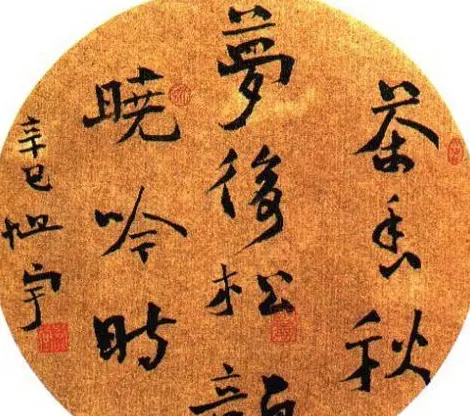 茶香秋
夢後松韻
曉吟時
辛巳旭宇